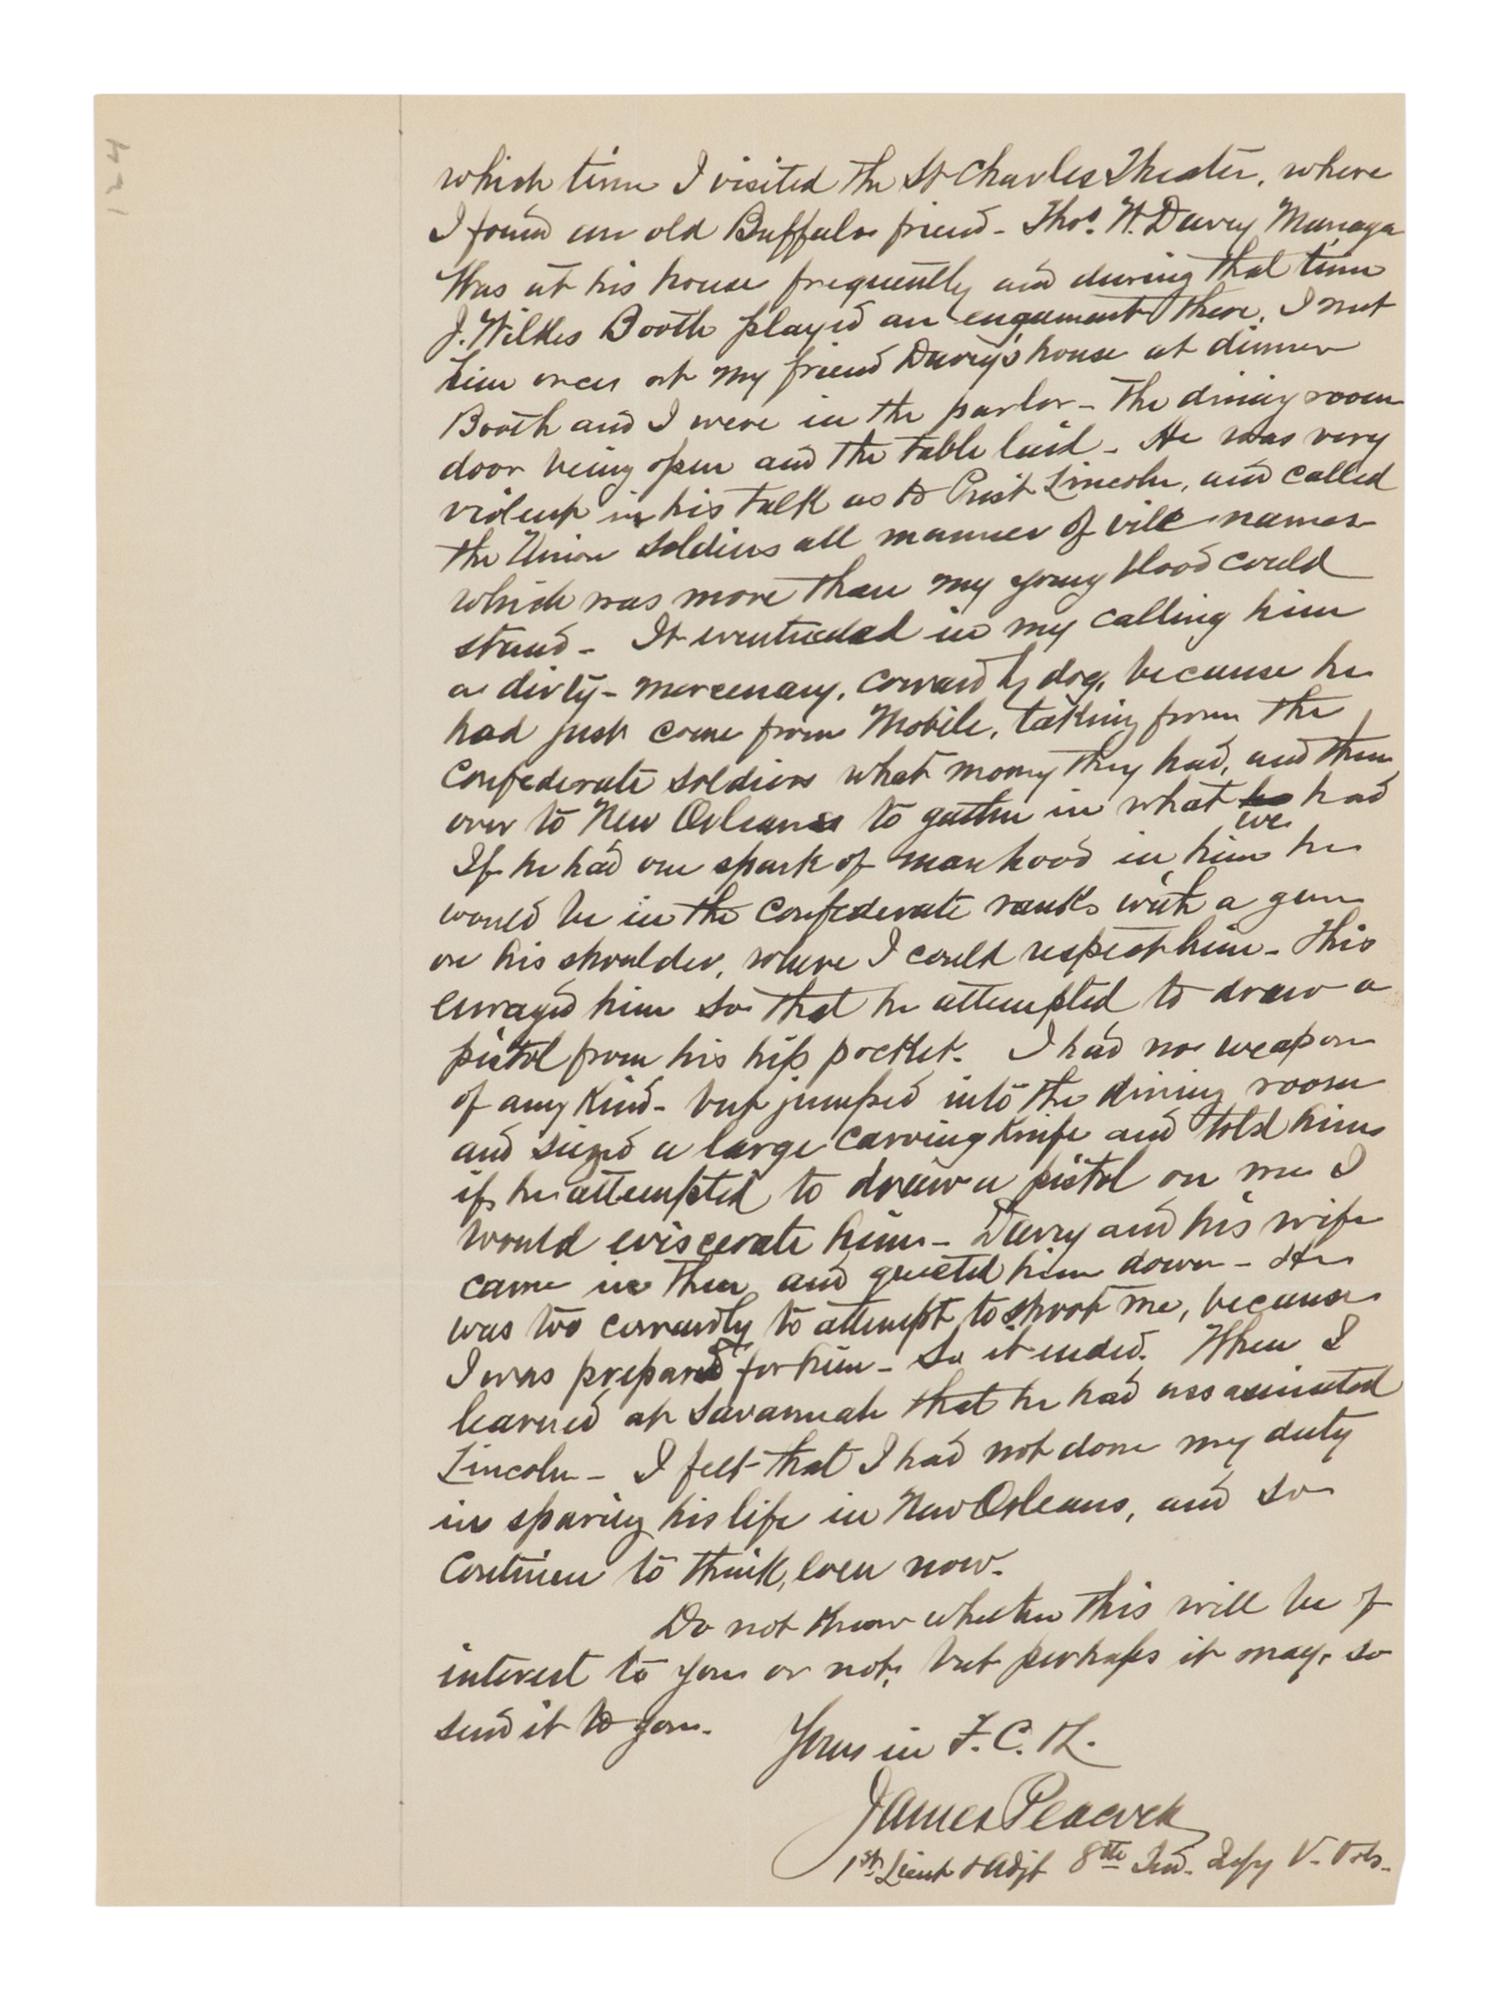 which time I visited the St Charles Theater, where
I found an old Buffalo friend - Thos. W. Davey Manager
Was at his house frequently and during that time
J. Wilkes Booth played an engament there. I met
him once at my friend Davey's house at dinner
Booth and I were in the parlor - The dining room
door being open and the table laid - He was very
violent in his talk as to Prest Lincoln, and called
the Union soldiers all manner of vile names
which was more than my young blood could
stand - It eventuated in my calling him
a dirty - mercenary, cowardly dog, because he
had just come from Mobile, taking from the
Confederate soldiers what money they had, and then
over to New Orleans to gather in what he had
we
If he had one spark of manhood in him he
would be in the Confederate ranks with a gun
on his shoulder, where I could respect him - This
enraged him so that he attempted to draw a
pistol from his hip pocket. I had no weapon
of any kind - but jumped into the dining room
and siezed a large carving knife and told him
if he attempted to draw a pistol on me I
would eviscerate him - Davey and his wife
came in then and quieted him down - He
was too cowardly to attempt to shoot me, because
I was prepared for him - So it ended. When I
learned at Savannah that he had assasinated
Lincoln - I felt that I had not done my duty
in sparing his life in New Orleans, and so
continue to think, even now.
Do not know whether this will be of
interest to you or not, but perhaps it may, so
send it to you.
Yours in F. C. L.
James Peacock
1st Lieut & Adjt 8th Ind. Infy V. Vols.